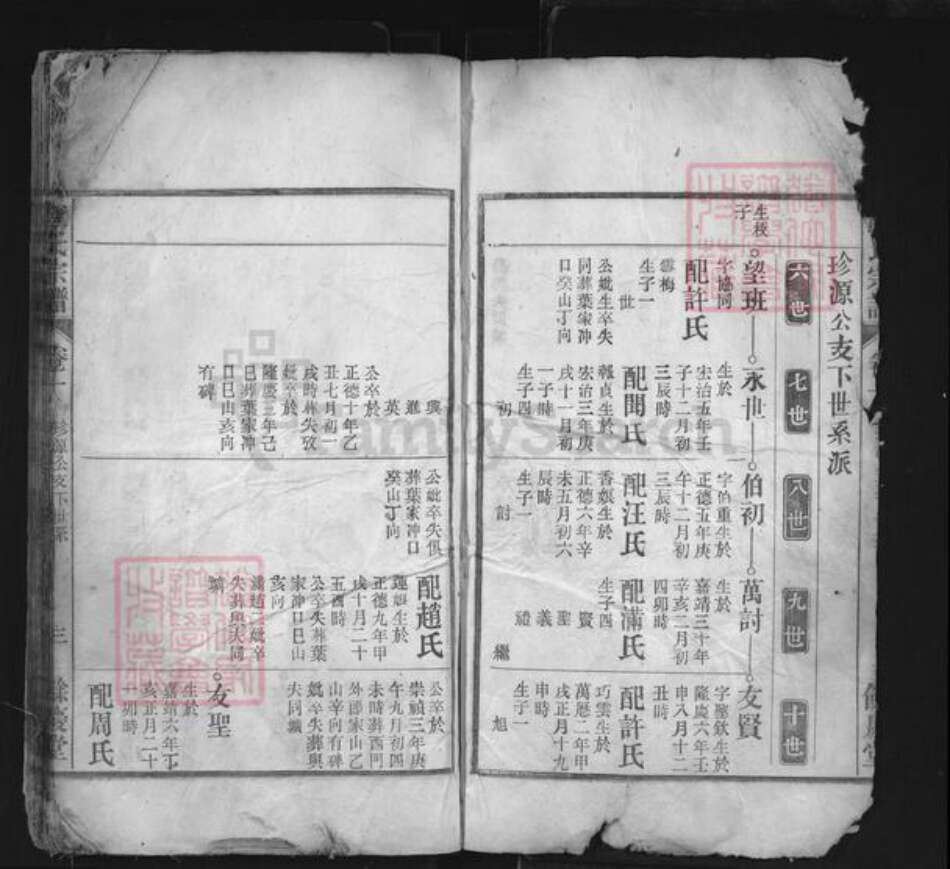 珍源公支下世系派
六世
七世
八世
九世
十世
生梭
子
望班
永世
伯初
萬討
友賢
字協同
配許氏
雲梅
生子一
世
公妣生卒失
同葬葉家冲
口癸山丁向
生於
宏治五年壬
子十二月初
三辰時
配閔氏
報貞生於
宏治三年庚
戌十一月初
一子時
生子四
初
字伯重生於
正德五年庚
午十二月初
三辰時
配汪氏
香娘生於
正德六年辛
未五月初六
辰時
生子一
討
生於
嘉靖三十年
辛亥二月初
四卯時
配滿氏
生子四
賢
聖
義
禮
繼
字鑒欽生於
隆慶六年壬
申八月十二
丑時
配許氏
巧雲生於
萬曆二年甲
戌正月十九
申時
生子一
旭
興
進
英
公卒於
正德十年乙
丑七月初一
戌時葬失攷
妣卒於
隆慶三年己
巳葬葉家冲
口巳山亥向
有碑
公妣卒失俱
葬葉家冲口
癸山丁向
配趙氏
蓮娘生於
正德九年甲
戌十月二十
五酉時
公卒失葬葉
家冲口巳山
亥向
滿趙二妣卒
失葬與夫同
壙
公卒於
崇禎三年庚
午九月初四
未時葬西門
外郎家山乙
山辛向有碑
妣卒失葬與
夫同壙
友聖
生於
嘉靖六年丁
亥正月二十
一卯時
配周氏
氏宗譜
卷一
珍源公支下世系
三
餘慶堂
FamilySearch